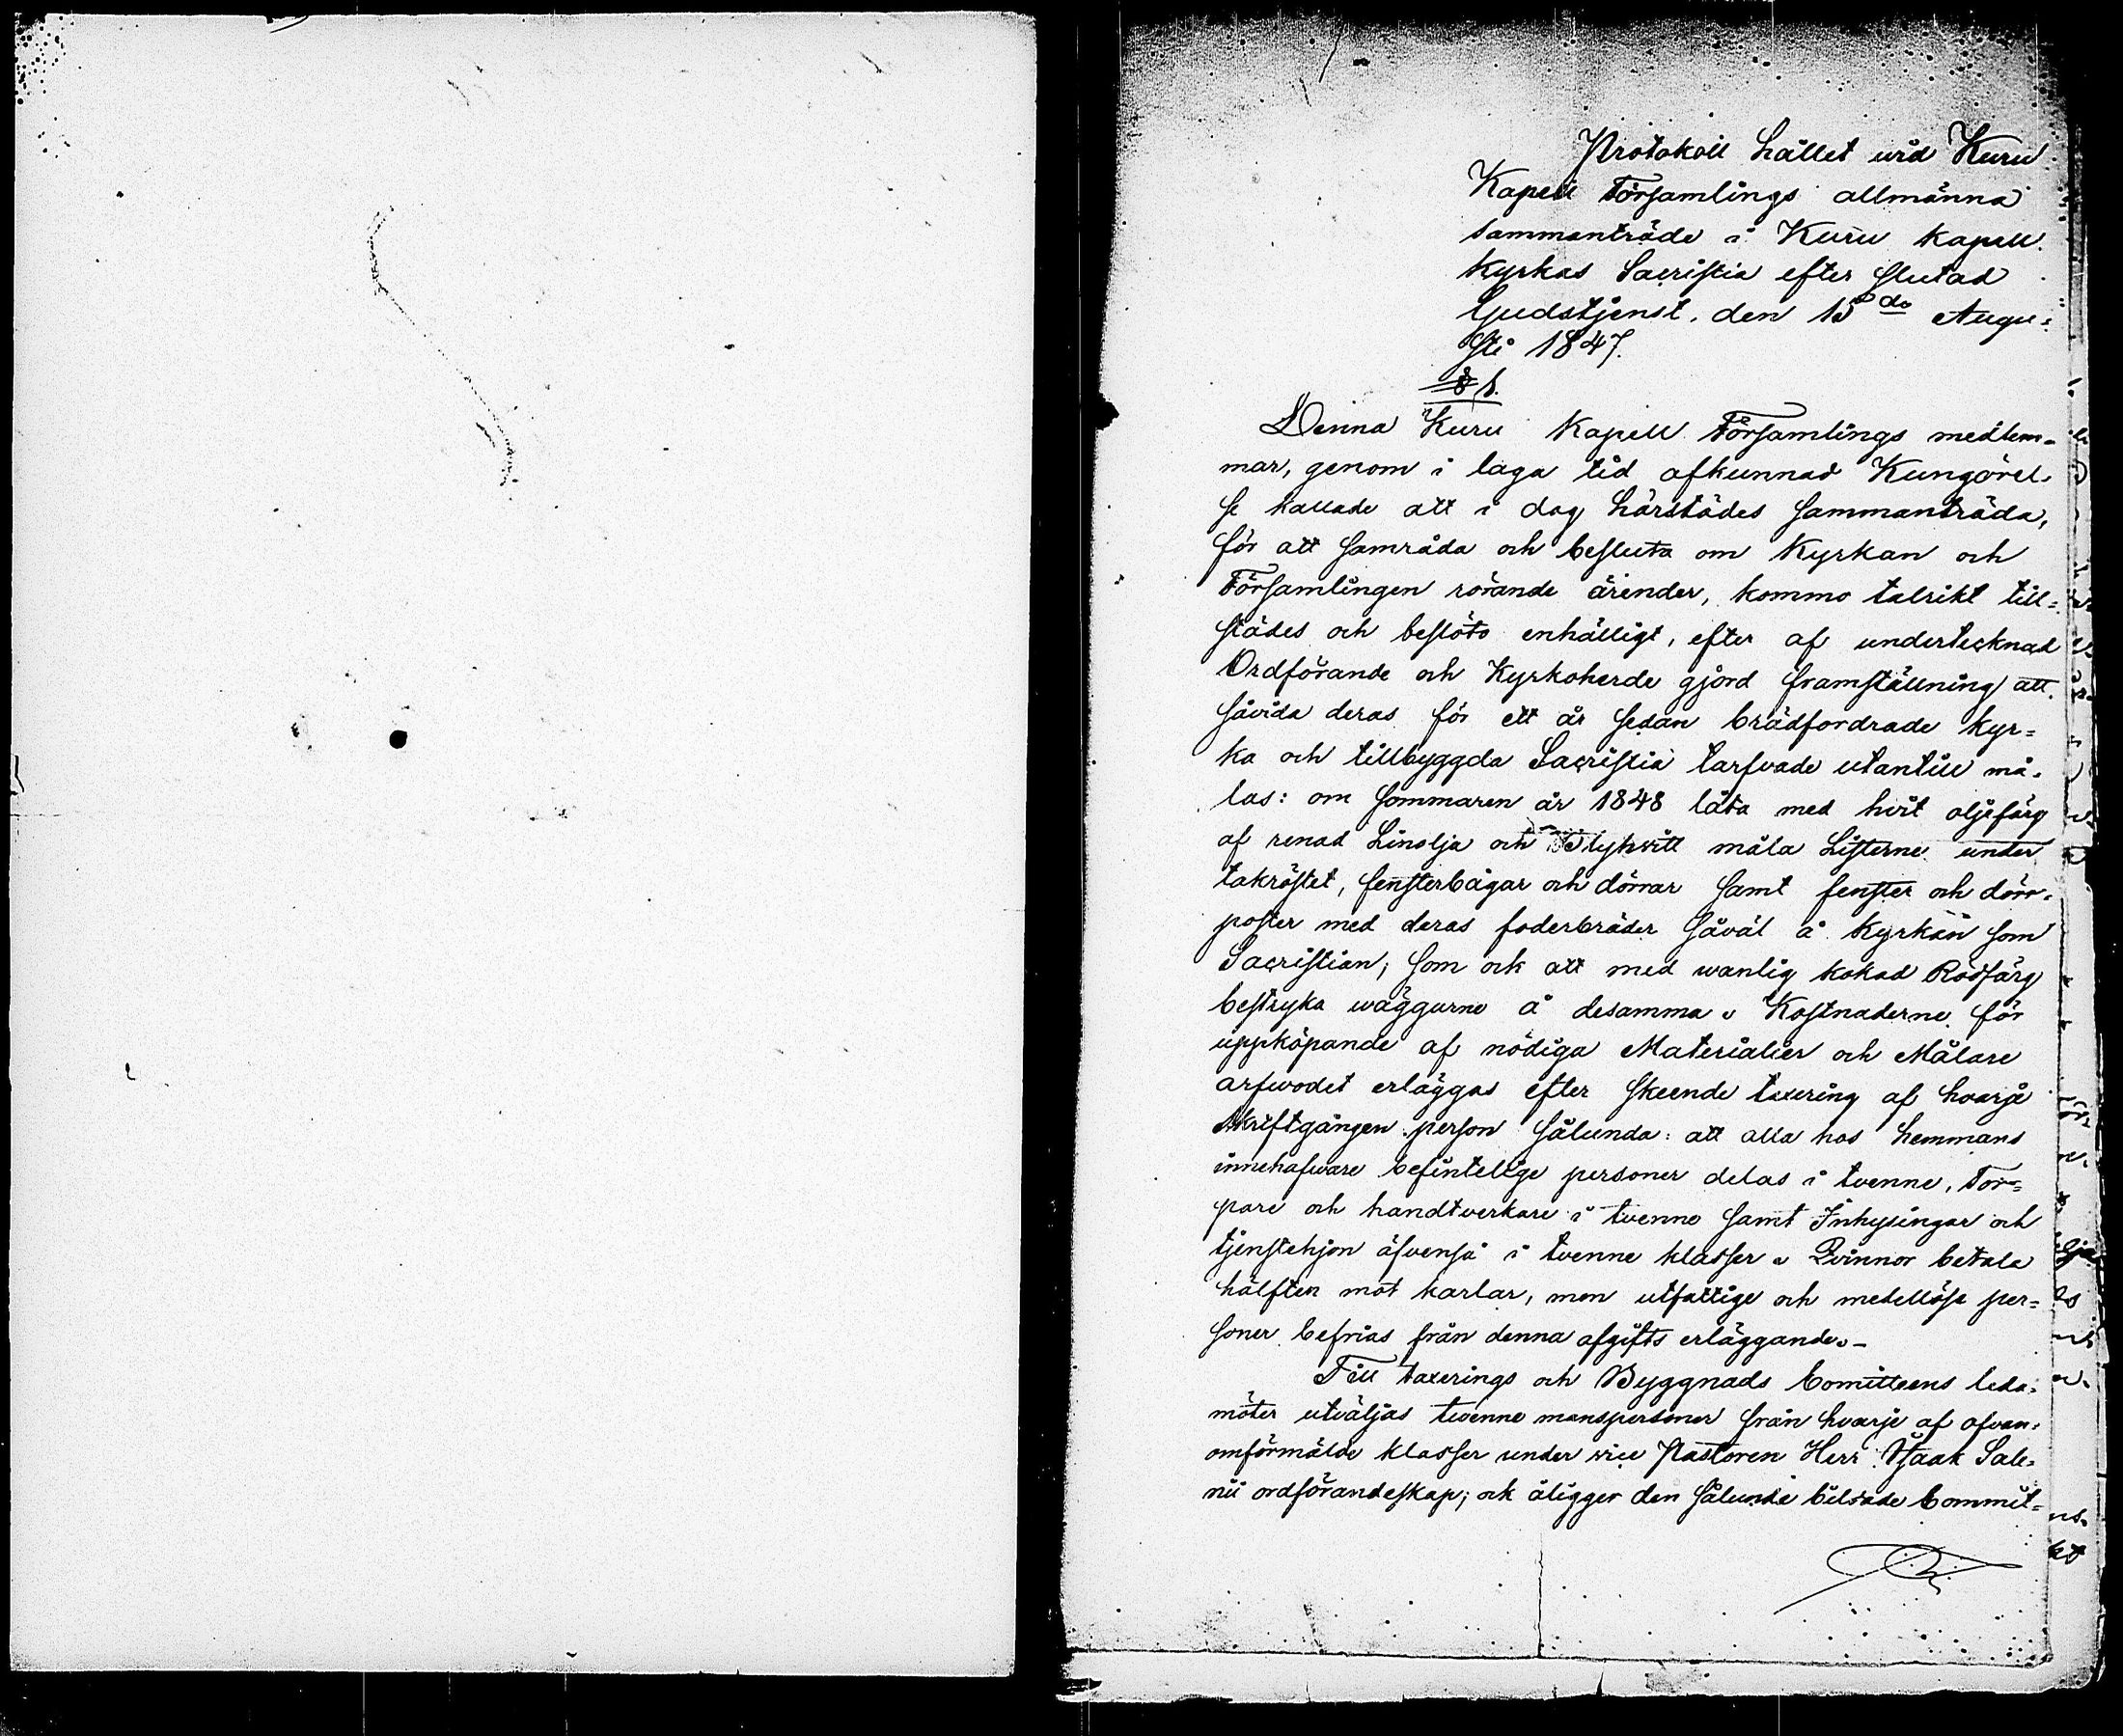 Protokoll hållet wid Kuru
Kapell Församlings allmänna
sammanträde i Kuru Kapell
Kyrkas Sacristia efter slutad
Gudstjenst, den 15de Augu=
sti 1847.
§ 1.
Denna Kuru Kapell Församlings medlem-
mar, genom i laga tid afkunnad Kungörel-
se kallade att i dag härstädes sammanträda,
för att samråda och besluta om Kyrkan och
Församlingen rörande ärender, kommo talrikt till=
städes och beslöts enhälligt, efter af undertecknad
Ordförande och Kyrkoherde gjord framställning att
såvida deras för ett år sedan brädfordrade Kyr=
ka och tillbyggda Sacristia tarfvade utantill må-
las: om Sommaren år 1848 låta med hvit oljefärg
af renad Linolja och Blyhvitt måla Listerne under
takröstet, fensterbågar och dörrar samt fenster och dörr-
poster med deras foderbräder såväl å Kyrkan som
Sacristian; som ock att med wanlig kokad Rödfärg
bestryka wäggarne å desamma. Kostnaderne för
uppköpande af nödiga Materialier och Målare
arfwodet erläggas efter skeende taxering af hvarje
skriftgången person sålunda: att alla hos hemmans
innehafware befintelige personer delas i tvenne, Tor=
pare och handtverkare i tvenne samt Inhysingar och
tjenstehjon äfvenså i tvenne klasser. Qvinnor betala
hälften mot karlar, men utfattige och medellöse per=
soner befrias från denna afgifts erläggande.-
Till taxerings och Byggnads Comitteens leda-
möter utväljas twenne manspersoner från hvarje af ofvan-
omförmälde klasser under vice Pastoren Herr Isaak Sale-
nii ordförandeskap; ock åligger den sålunda bildade Commit=